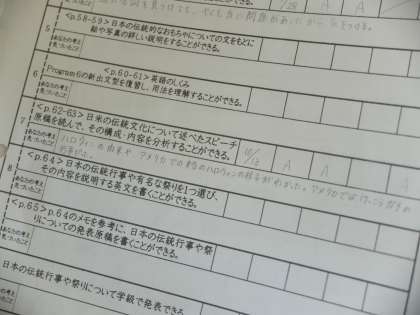 見つけること
5
<p.58-59>日本の伝統的なおもちゃについての文をもとに
絵や写真の詳しい説明をすることができる。
あなたの考え
見つけたこと
6
Program 6の新出文型を復習し、用法を理解することができる。
<p.60-61>英語のしくみ
あなたの考え
見つけたこと
7
<p.62-63>日米の伝統文化について述べたスピーチ
原稿を読んで、その構成・内容を分析することができる。
10/12 A A A
あなたの考え
見つけたこと
ハロウィンの由来や アメリカでの ハロウィンの様子がわかった。アメリカでは
8
<p.64>日本の伝統行事や有名な祭りを1つ選び、
その内容を説明する英文を書くことができる。
あなたの考え
見つけたこと
<p.65>p.64のメモを参考に、日本の伝統行事や祭
りについての発表原稿を書くことができる。
あなたの考え
見つけたこと
日本の伝統行事や祭りについて学級で発表できる
あなたの考え
見つけたこと